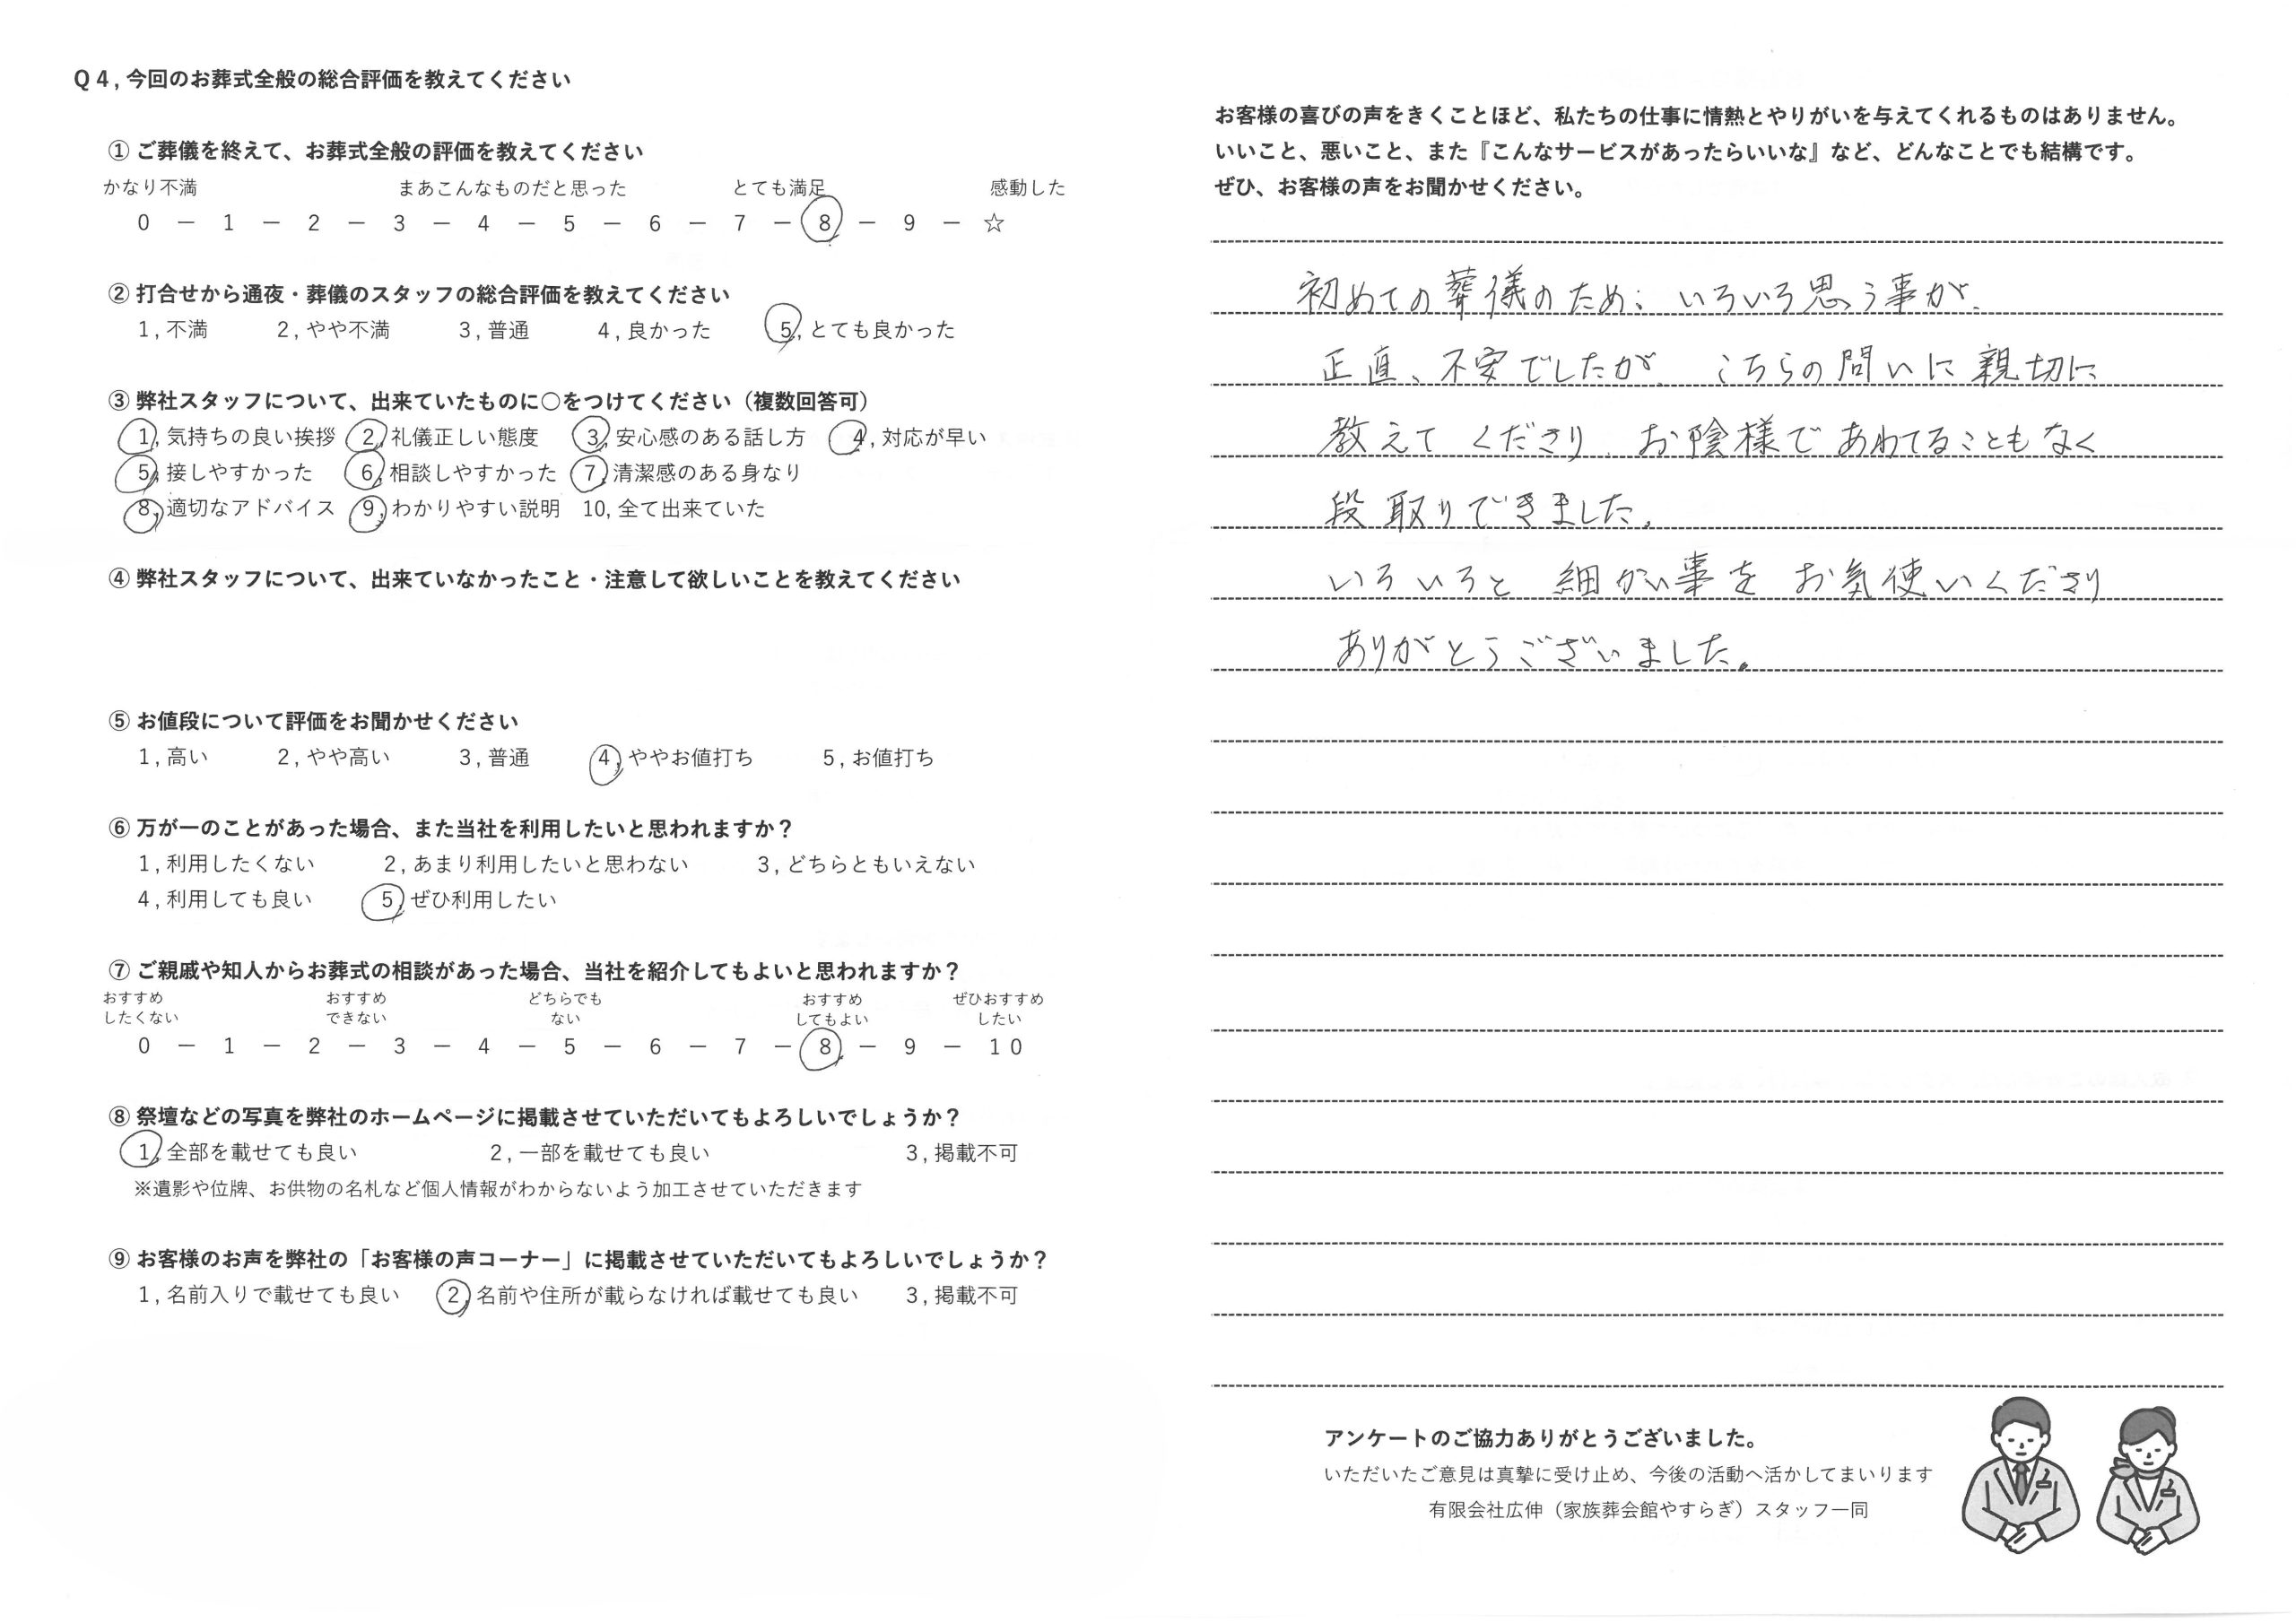 Q4,今回のお葬式全般の総合評価を教えてください
① ご葬儀を終えて、お葬式全般の評価を教えてください
かなり不満 まあこんなものだと思った とても満足 感動した
0 － 1 － 2 － 3 － 4 － 5 － 6 － 7 － 8 － 9 － ☆
② 打合せから通夜・葬儀のスタッフの総合評価を教えてください
1,不満 2,やや不満 3,普通 4,良かった 5,とても良かった
③ 弊社スタッフについて、出来ていたものに○をつけてください（複数回答可）
1,気持ちの良い挨拶 2,礼儀正しい態度 3,安心感のある話し方 4,対応が早い
5,接しやすかった 6,相談しやすかった 7,清潔感のある身なり
8,適切なアドバイス 9,わかりやすい説明 10,全て出来ていた
④ 弊社スタッフについて、出来ていなかったこと・注意して欲しいことを教えてください
⑤ お値段について評価をお聞かせください
1,高い 2,やや高い 3,普通 4,ややお値打ち 5,お値打ち
⑥ 万が一のことがあった場合、また当社を利用したいと思われますか？
1,利用したくない 2,あまり利用したいと思わない 3,どちらともいえない
4,利用しても良い 5,ぜひ利用したい
⑦ ご親戚や知人からお葬式の相談があった場合、当社を紹介してもよいと思われますか？
おすすめ おすすめ どちらでも おすすめ ぜひおすすめ
したくない できない ない してもよい したい
0 － 1 － 2 － 3 － 4 － 5 － 6 － 7 － 8 － 9 － 10
⑧ 祭壇などの写真を弊社のホームページに掲載させていただいてもよろしいでしょうか？
1,全部を載せても良い 2,一部を載せても良い 3,掲載不可
※遺影や位牌、お供物の名札など個人情報がわからないよう加工させていただきます
⑨ お客様のお声を弊社の「お客様の声コーナー」に掲載させていただいてもよろしいでしょうか？
1,名前入りで載せても良い 2,名前や住所が載らなければ載せても良い 3,掲載不可
お客様の喜びの声をきくことほど、私たちの仕事に情熱とやりがいを与えてくれるものはありません。
いいこと、悪いこと、また『こんなサービスがあったらいいな』など、どんなことでも結構です。
ぜひ、お客様の声をお聞かせください。
初めての葬儀のため、いろいろ思う事が、
正直、不安でしたが、こちらの問いに親切に
教えてくださり、お陰様であわてることもなく
段取りできました。
いろいろと細かい事をお気使いくださり
ありがとうございました。
アンケートのご協力ありがとうございました。
いただいたご意見は真摯に受け止め、今後の活動へ活かしてまいります
有限会社広伸（家族葬会館やすらぎ）スタッフ一同